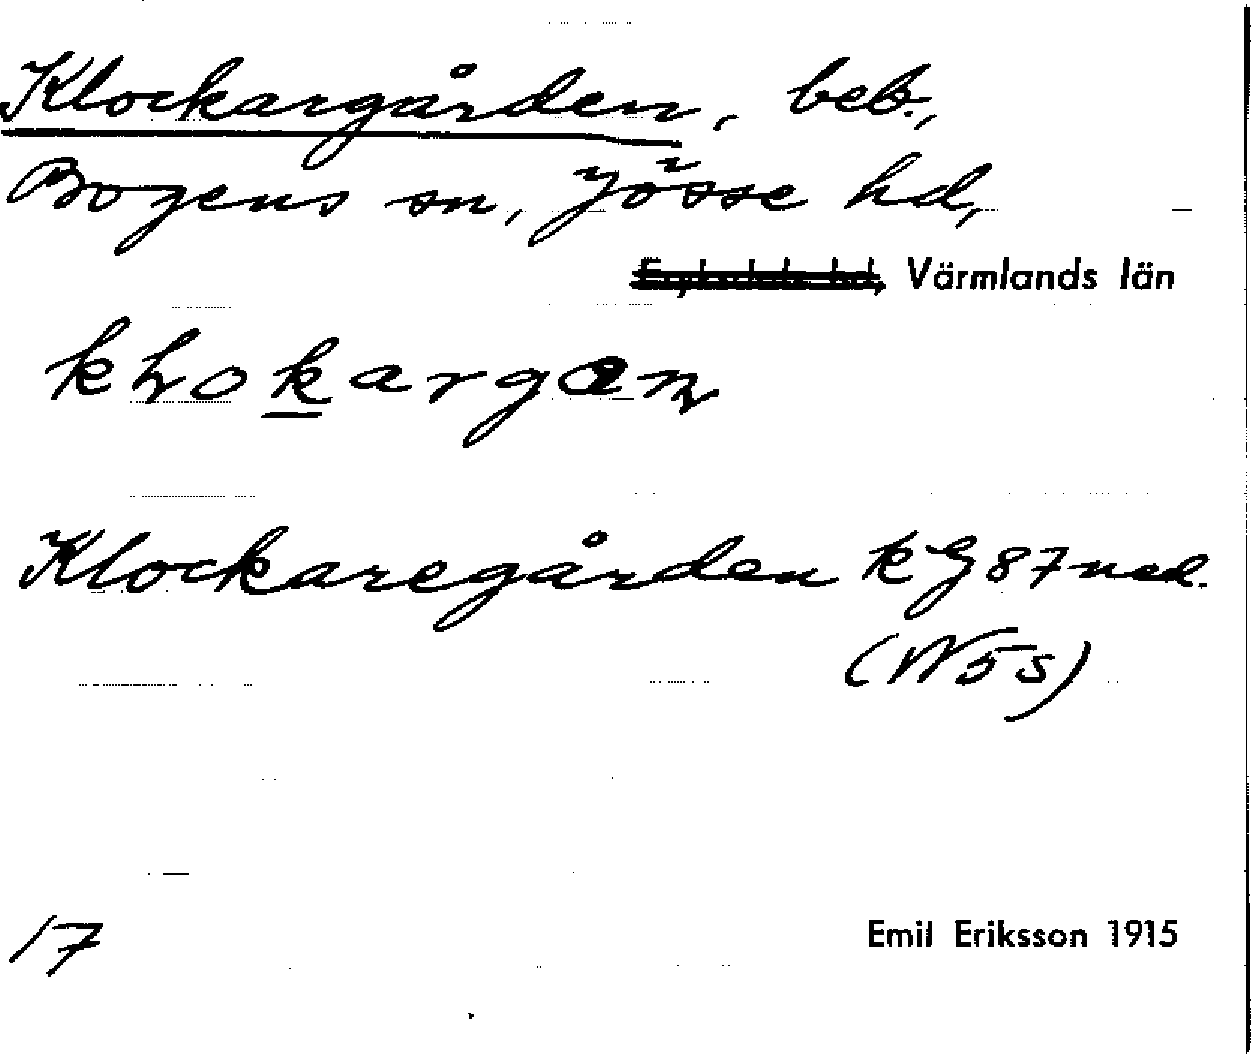 Klockargården, beb.,
Bogens sn, Jösse hd,
Fryksdals hd, Värmlands län
kɫokargαɳ
Klockaregården kG87ned.
(N5s)
17
Emil Eriksson 1915